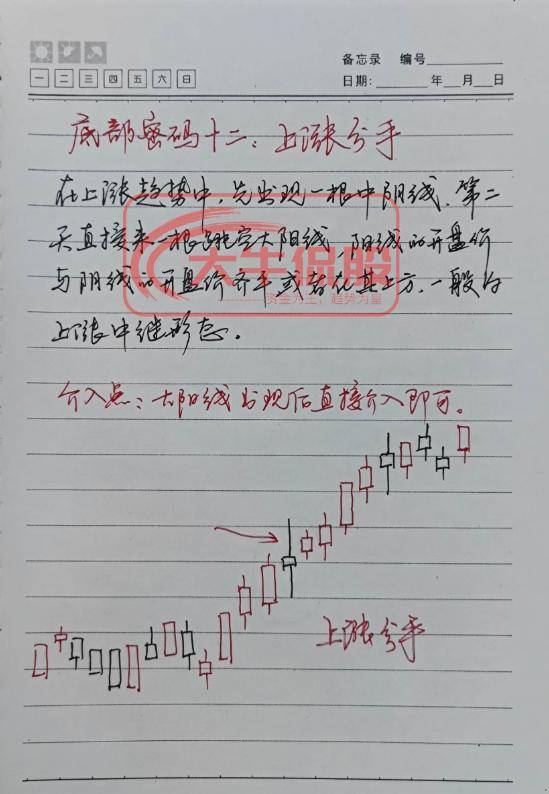 备忘录 编号
一 二 三 四 五 六 日
日期: 年 月 日
底部密码十二：上涨分手
在上涨趋势中，先出现一根中阴线，第二
天直接来一根跳空大阳线，阳线的开盘价
与阴线的开盘价齐平或者在其上方，一般为
上涨中继形态。
大牛侃股
资金为王，趋势为皇
介入点：大阳线出现后直接介入即可。
上涨分手